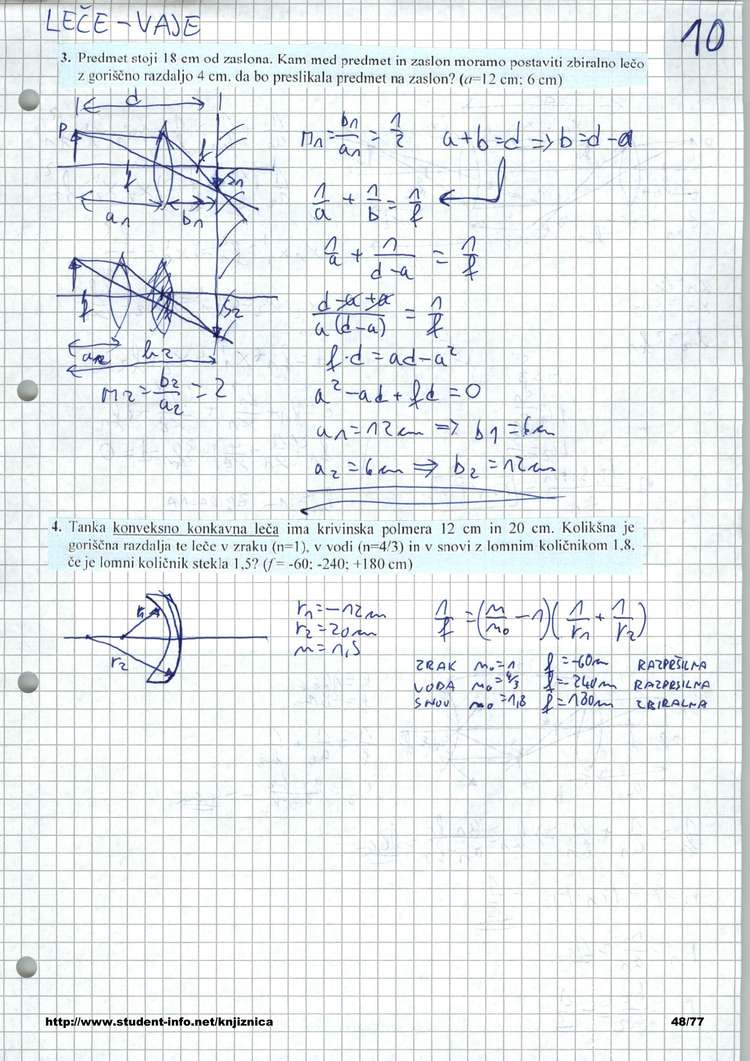 LEČE-VAJE
10
3. Predmet stoji 18 cm od zaslona. Kam med predmet in zaslon moramo postaviti zbiralno lečo
z goriščno razdaljo 4 cm, da bo preslikala predmet na zaslon? (a=12 cm; 6 cm)
d
P
f
f
S1
a1
b1
m1 = b1/a1 = 1/2
a+b=d => b=d-a
1/a + 1/b = 1/f
1/a + 1/(d-a) = 1/f
(d-a+a)/(a(d-a)) = 1/f
f·d = ad-a²
a²-ad+fd=0
a1=12cm => b1=6cm
a2=6cm => b2=12cm
f
S2
a2
b2
m2 = b2/a2 = 2
4. Tanka konveksno konkavna leča ima krivinska polmera 12 cm in 20 cm. Kolikšna je
goriščna razdalja te leče v zraku (n=1), v vodi (n=4/3) in v snovi z lomnim količnikom 1,8,
če je lomni količnik stekla 1,5? (f = -60; -240; +180 cm)
r1
r2
r1=-12cm
r2=20cm
n=1,5
1/f = (n/n0 - 1)(1/r1 + 1/r2)
ZRAK n0=1 f=-60cm RAZPRŠILNA
VODA n0=4/3 f=-240cm RAZPRŠILNA
SNOV n0=1,8 f=180cm ZBIRALNA
http://www.student-info.net/knjiznica
48/77